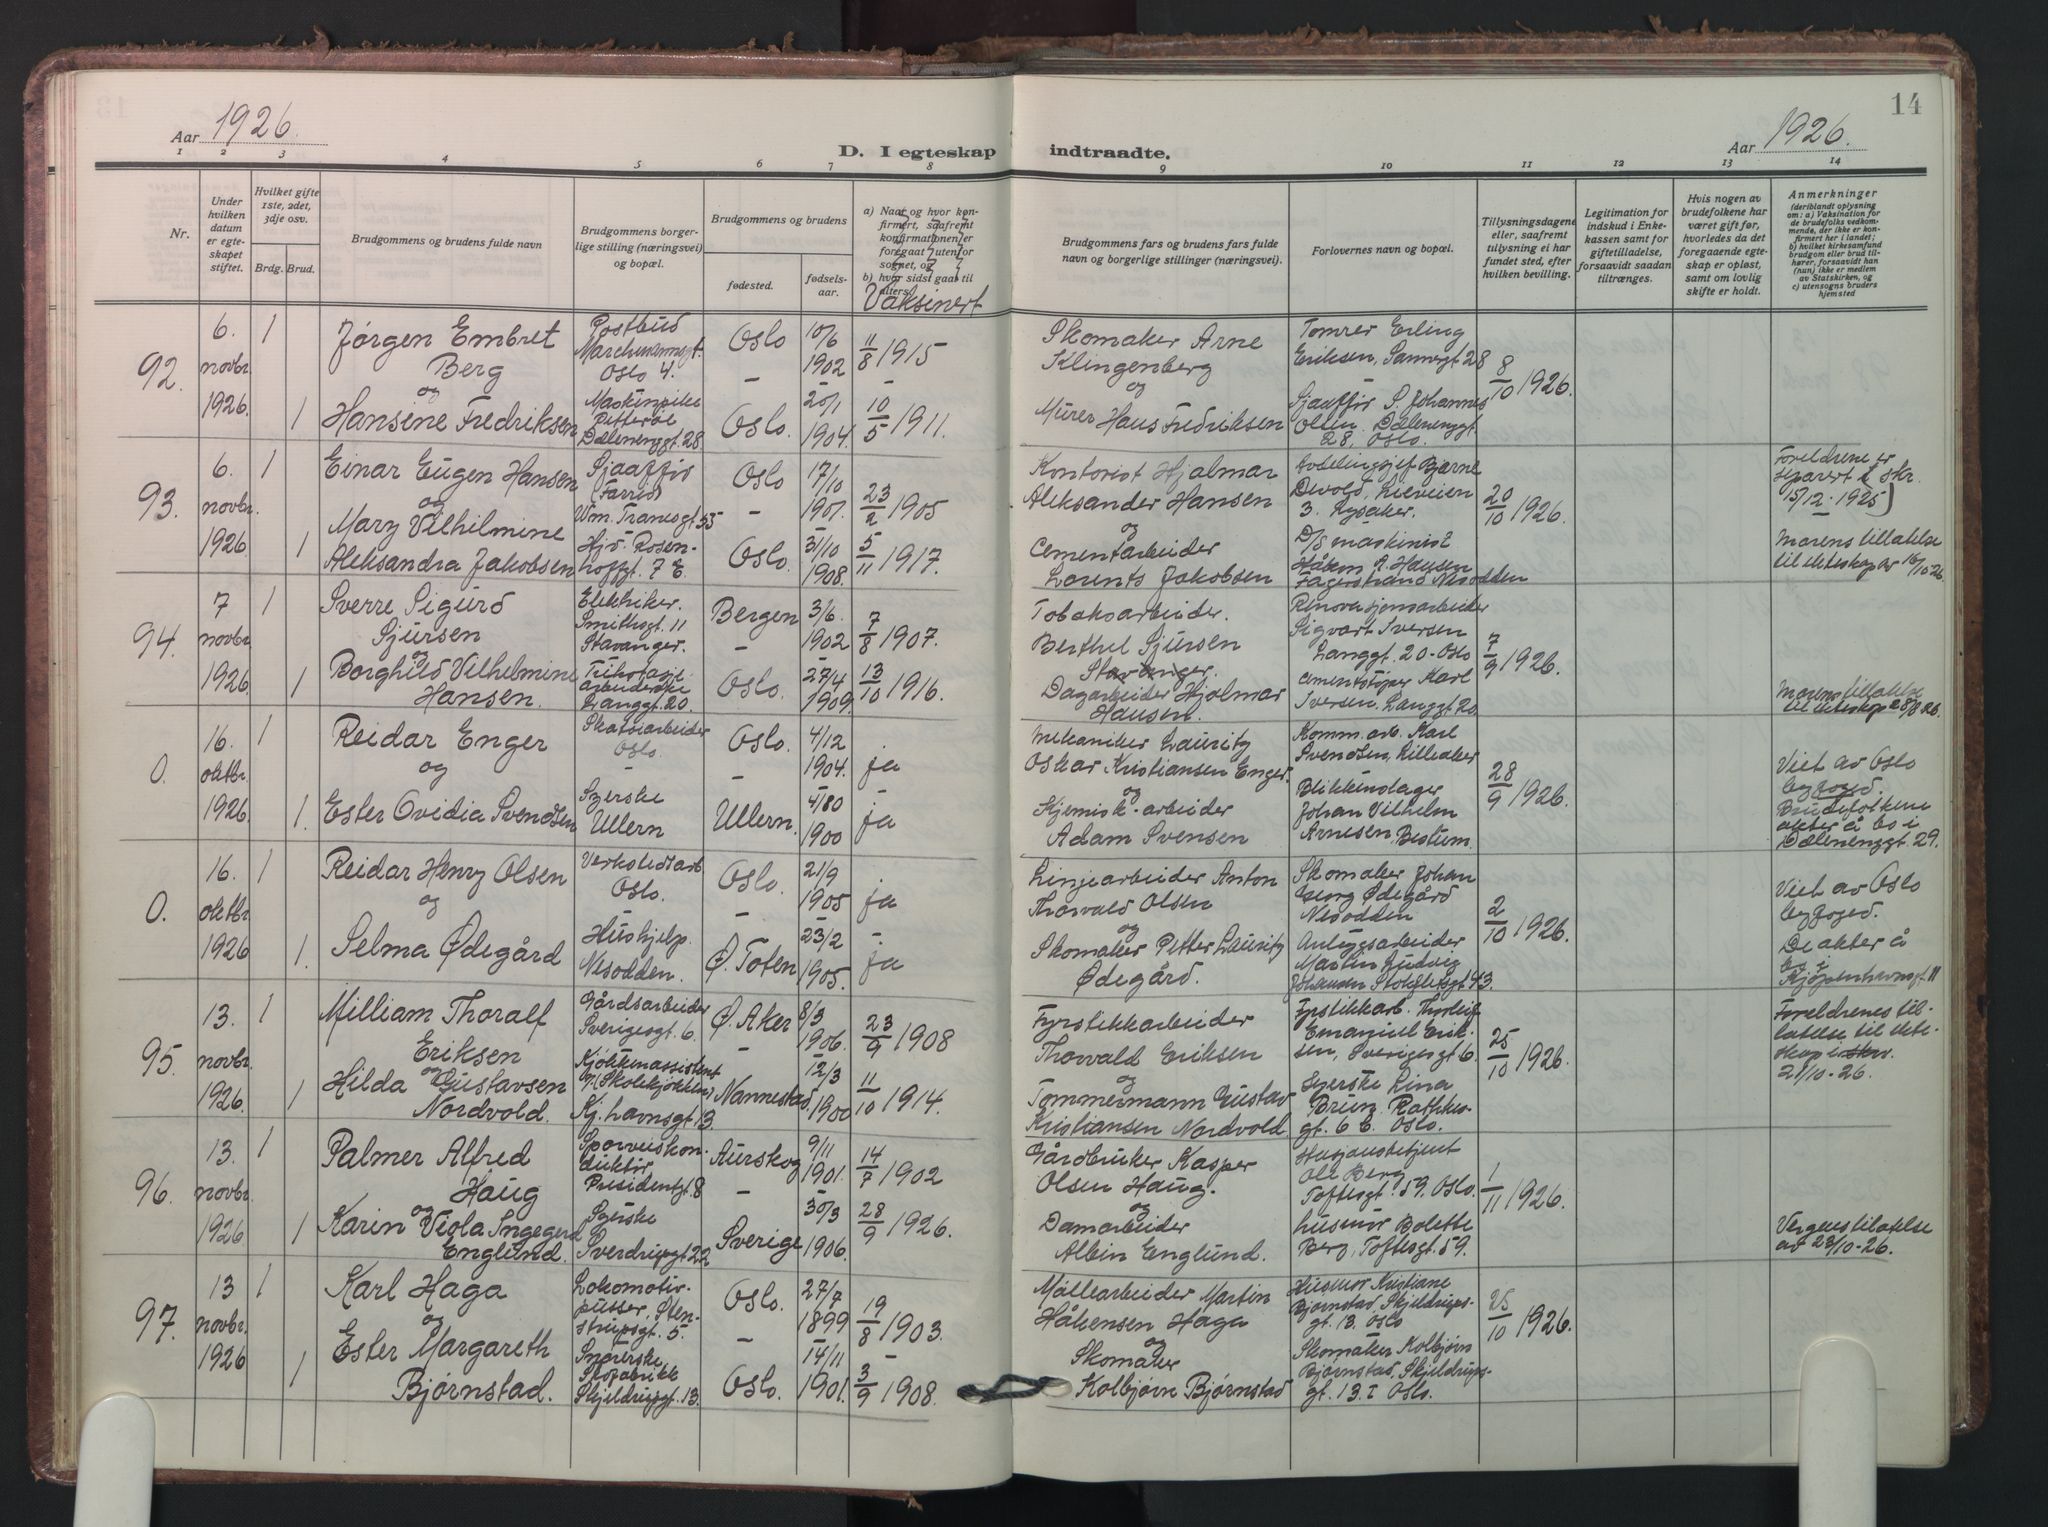 14
Aar 1926.
D. I egteskap indtraadte.
Aar 1926.
1 2 3 4 5 6 7 8 9 10 11 12 13 14
Nr.
Under hvilken datum er egteskapet stiftet.
Hvilket gifte 1ste, 2det, 3dje osv.
Brdg. Brud.
Brudgommens og brudens fulde navn
Brudgommens borgerlige stilling (næringsvei) og bopæl.
Brudgommens og brudens
fødested.
fødselsaar.
a) Naar og hvor konfirmert, saafremt konfirmationen er foregaat utenfor sognet, og
b) hvor sidst gaat til alters.
Vaksinert
Brudgommens fars og brudens fars fulde navn og borgerlige stillinger (næringsvei).
Forlovernes navn og bopæl.
Tillysningsdagene eller, saafremt tillysning ei har fundet sted, efter hvilken bevilling.
Legitimation for indskud i Enkekassen samt for giftetilladelse, forsaavidt saadan tiltrænges.
Hvis nogen av brudefolkene har været gift før, hvorledes da det foregaaende egteskap er opløst, samt om lovlig skifte er holdt.
Anmerkninger
(deriblandt oplysning om: a) Vaksination for de brudefolks vedkommende, der ikke er konfirmert her i landet; b) hvilket kirkesamfund brudgom eller brud tilhører, forsaavidt han (hun) ikke er medlem av Statskirken, og c) utensogns bruders hjemsted
92. 6. novbr. 1926. 1
Jørgen Embret Berg
og
1 Hansine Fredriksen
Postbud
Oslo 4.
Dælenenggt. 28.
Oslo 10/6 1902 11/8 1915
Oslo. 20/1 1904. 10/5 1911.
Skomaker Arne Klingenberg
og
Murer Hans Fredriksen
Tømrer Erling Eriksen, Sannergt 28
Sjaaffør S. Johannes Olsen Dælenenggt. 28, Oslo.
8/10 1926.
93. 6. novbr. 1926 1
Einar Eugen Hansen
og
1 Mary Vilhelmine Aleksandra Jakobsen
Sjaaffør
Wm. Tranesgt 55
Hjv. Rosenhoffgt. 7 E.
Oslo 17/10 1901. 23/2 1905
Oslo. 31/10 1908. 5/11 1917.
Kontorist Hjalmar Aleksander Hansen
og
Cementarbeider Lorents Jakobsen
Avdelingsjef Bjarne Devold, Lilleveien 3. Lysaker.
D/S maskinist Håkon A. Hansen Fagerstrand Nesodden
20/10 1926.
Foreldrene er separert (skr. 15/12 - 1925)
Morens tillatelse til ekteskap av 16/10 26.
94. 7 novbr. 1926. 1
Sverre Sigurd Sjursen
og
1 Borghild Vilhelmine Hansen.
Elektriker.
Smithsgt. 11 Stavanger.
Trikotasjearbeiderske Langgt. 20.
Bergen 3/6 1902 7/8 1907.
Oslo. 27/4 1909. 13/10 1916.
Tobaksarbeider.
Berthel Sjursen
Stavanger.
Dagarbeider Hjalmar Hansen.
Renovasjonsarbeider Sigvart Iversen Langgt. 20 - Oslo
Cementstøper Karl Iversen. Langgt 20.
7/9 1926.
Morens tillatelse til ekteskap 28/8 26.
0. 16. oktbr. 1926 1
Reidar Enger
og
1. Ester Ovidia Svendsen
Oslo.
Syerske Ullern
Oslo. 4/12 1904. ja
Ullern. 1900 ja
Mekaniker Lauritz Oskar Kristiansen Enger.
og
Kjemisk-arbeider Adam Svensen
Komm.arb. Karl Svendsen, Lilleaker
Blikkenslager Johan Vilhelm Arnesen, Bestum.
28/9 1926.
Viet av Oslo Byfoged.
Brudefolkene akter å bo i Dælenenggt. 29.
0. 16. oktbr. 1926 1
Reidar Henry Olsen
og
1. Selma Ødegård
Verkstedsarb. Oslo.
Hushjelp. Nesodden.
Oslo. 21/9 1905 ja
Ø. Toten 23/2 1905. ja
Linjearbeider Anton Thorvald Olsen
og
Skomaker Petter Lauritz Ødegård.
Skomaker Johan Georg Ødegård Nesodden
Anleggsarbeider Martin Ludvig Johansen Stokfletsgt 43.
2/10 1926.
Viet av Oslo Byfoged.
De akter å bo i Kjøpenhavnsgt 11
95. 13. novbr. 1926. 1
William Thoralf Eriksen
og
1 Hilda Gustavsen Nordvold.
Gårdsarbeider Sverigesgt. 6.
Kjøkkenassistent (Skolekjøkken) Kj. havnsgt 13.
Ø. Aker 8/3 1906. 23/9 1908
Nannestad 12/3 1900 11/10 1914.
Fyrstikkarbeider Thorvald Eriksen
og
Tømmermann Gustav Kristiansen Nordvold
Fyrstikkarb. Thorleif Emanuel Eriksen, Sverigesgt 6.
Syerske Lina Brun Rathkesgt. 6 b. Oslo.
25/10 1926.
Foreldrenes tillatelse til ekteskap i skr. 21/10 - 26.
96. 13. novbr. 1926. 1
Palmer Alfred Haug
og
1 Karin Viola Ingegerd Englund.
Sporveiskonduktør, Presidentgt. 8
Syerske Sverdrupsgt 22
Aurskog 9/11 1901. 14/7 1902
Sverige 30/3 1906. 28/9 1926.
Gårdbruker Kasper Olsen Haug.
og
Damarbeider Albin Englund.
Ole Berg Toftesgt. 59. Oslo.
husmor Bolette Berg, Toftesgt. 59.
1/11 1926.
Vergens tillatelse av 23/10 - 26.
97. 13 novbr. 1926 1
Karl Haga
og
1 Ester Margareth Bjørnstad.
Lokomotivpusser, Stenstrupsgt. 5
Skofabrikk Skjeldrupsgt. 13.
Oslo. 27/7 1899 19/8 1903.
Oslo. 14/11 1901. 3/9 1908.
Møllearbeider Martin Håkensen Haga
og
Skomaker Kolbjørn Bjørnstad
Husmor Kristiane Bjørnstad, Skjeldrupsgt. 13. Oslo
Skomaker Kolbjørn Bjørnstad, Skjeldrupsgt. 13. I Oslo.
25/10 1926.